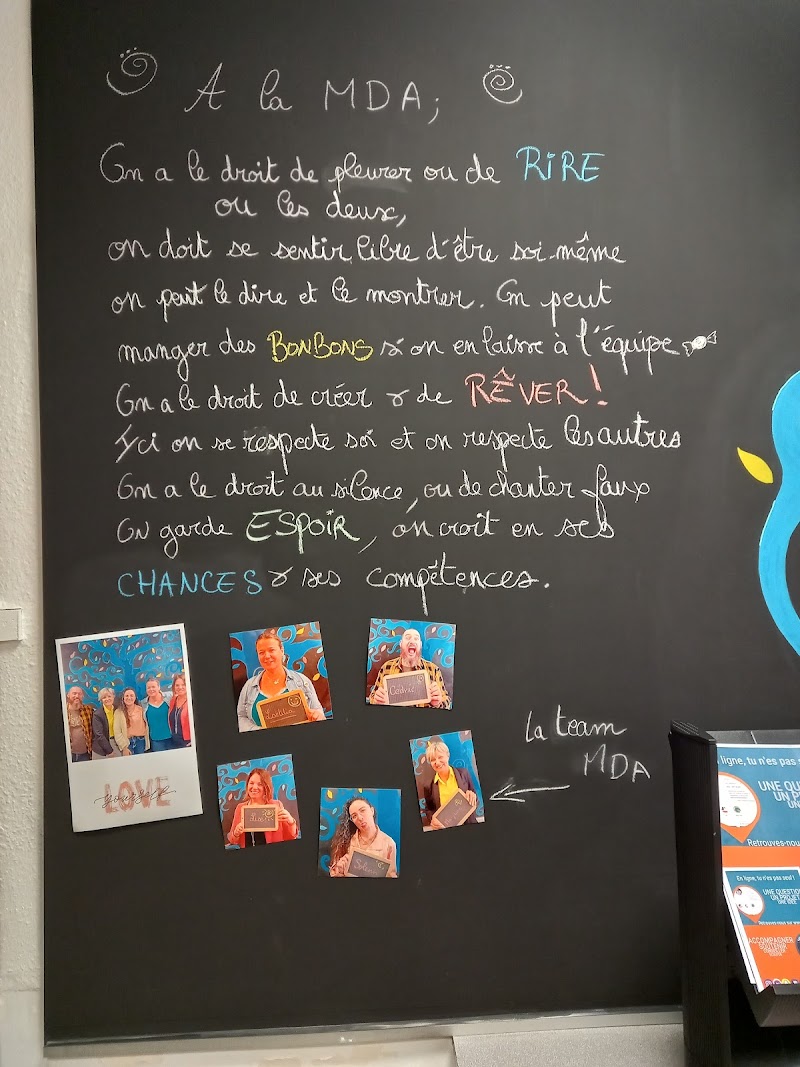 A la MDA;
On a le droit de pleurer ou de RIRE
ou les deux,
on doit se sentir libre d'être soi-même
on peut le dire et le montrer. On peut
manger des BONBONS si on en laisse à l'équipe
On a le droit de créer & de RÊVER!
Ici on se respecte soi et on respecte les autres
On a le droit au silence, ou de chanter faux
On garde ESPOIR, on croit en ses
CHANCES & ses compétences.
la team
MDA
LOVE
yourself
Laetitia
Cédric
ligne, tu n'es pas s
UNE QUE
UN P
UN
Retrouves-nou
En ligne, tu n'es pas seul !
UNE QUESTION
UN PROJET
UNE IDÉE
ACCOMPAGNER
SOUTENIR